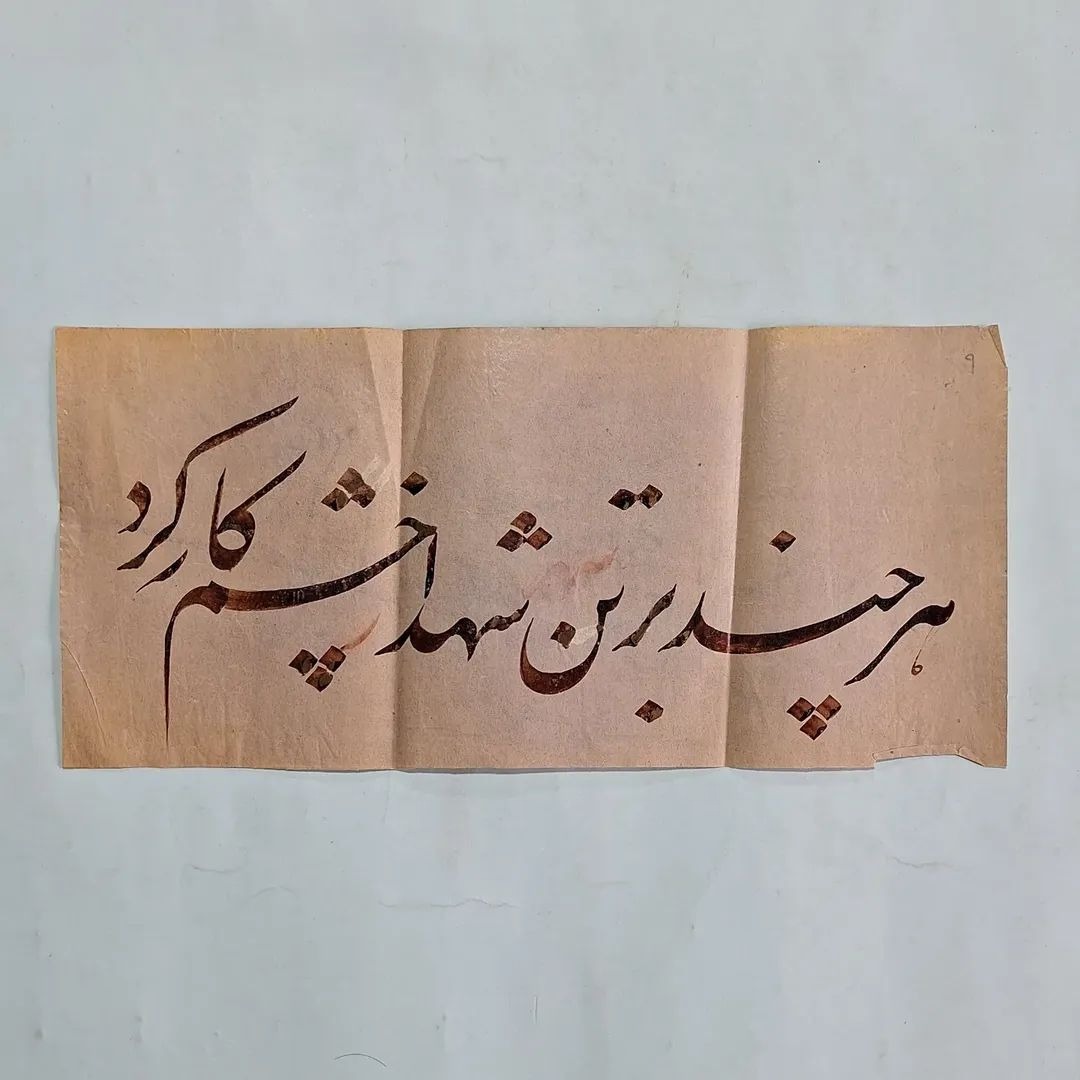 ۹
هر چند بر تن شهدا خشم کار کرد